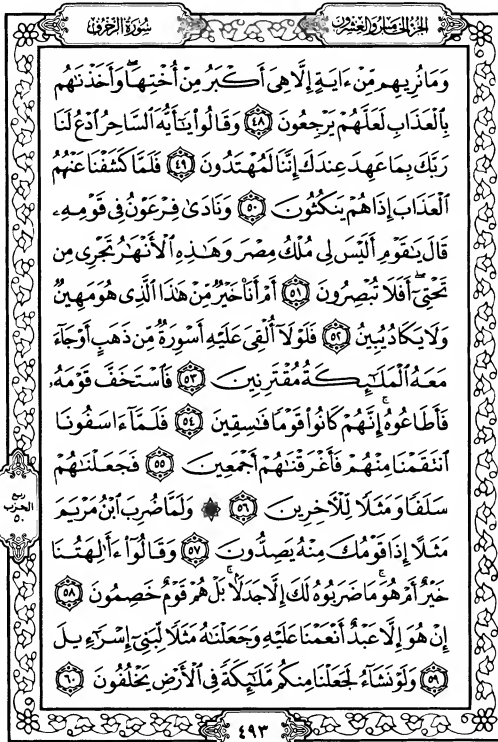 الجزء الخامس والعشرون
سورة الزخرف
وَمَا نُرِيهِم مِّنْ ءَايَةٍ إِلَّا هِيَ أَكْبَرُ مِنْ أُخْتِهَا ۖ وَأَخَذْنَٰهُم
بِٱلْعَذَابِ لَعَلَّهُمْ يَرْجِعُونَ ٤٨ وَقَالُوا۟ يَٰٓأَيُّهَ ٱلسَّاحِرُ ٱدْعُ لَنَا
رَبَّكَ بِمَا عَهِدَ عِندَكَ إِنَّنَا لَمُهْتَدُونَ ٤٩ فَلَمَّا كَشَفْنَا عَنْهُمُ
ٱلْعَذَابَ إِذَا هُمْ يَنكُثُونَ ٥٠ وَنَادَىٰ فِرْعَوْنُ فِى قَوْمِهِۦ
قَالَ يَٰقَوْمِ أَلَيْسَ لِى مُلْكُ مِصْرَ وَهَٰذِهِ ٱلْأَنْهَٰرُ تَجْرِى مِن
تَحْتِىٓ ۖ أَفَلَا تُبْصِرُونَ ٥١ أَمْ أَنَا۠ خَيْرٌ مِّنْ هَٰذَا ٱلَّذِى هُوَ مَهِينٌ
وَلَا يَكَادُ يُبِينُ ٥٢ فَلَوْلَآ أُلْقِىَ عَلَيْهِ أَسْوِرَةٌ مِّن ذَهَبٍ أَوْ جَآءَ
مَعَهُ ٱلْمَلَٰٓئِكَةُ مُقْتَرِنِينَ ٥٣ فَٱسْتَخَفَّ قَوْمَهُۥ
فَأَطَاعُوهُ ۚ إِنَّهُمْ كَانُوا۟ قَوْمًا فَٰسِقِينَ ٥٤ فَلَمَّآ ءَاسَفُونَا
ٱنتَقَمْنَا مِنْهُمْ فَأَغْرَقْنَٰهُمْ أَجْمَعِينَ ٥٥ فَجَعَلْنَٰهُمْ
سَلَفًا وَمَثَلًا لِّلْءَاخِرِينَ ٥٦ ۞ وَلَمَّا ضُرِبَ ٱبْنُ مَرْيَمَ
مَثَلًا إِذَا قَوْمُكَ مِنْهُ يَصِدُّونَ ٥٧ وَقَالُوٓا۟ ءَأَٰلِهَتُنَا
خَيْرٌ أَمْ هُوَ ۚ مَا ضَرَبُوهُ لَكَ إِلَّا جَدَلًۢا ۚ بَلْ هُمْ قَوْمٌ خَصِمُونَ ٥٨
إِنْ هُوَ إِلَّا عَبْدٌ أَنْعَمْنَا عَلَيْهِ وَجَعَلْنَٰهُ مَثَلًا لِّبَنِىٓ إِسْرَٰٓءِيلَ
٥٩ وَلَوْ نَشَآءُ لَجَعَلْنَا مِنكُم مَّلَٰٓئِكَةً فِى ٱلْأَرْضِ يَخْلُفُونَ ٦٠
ربع
الحزب
٥٠
٤٩٣